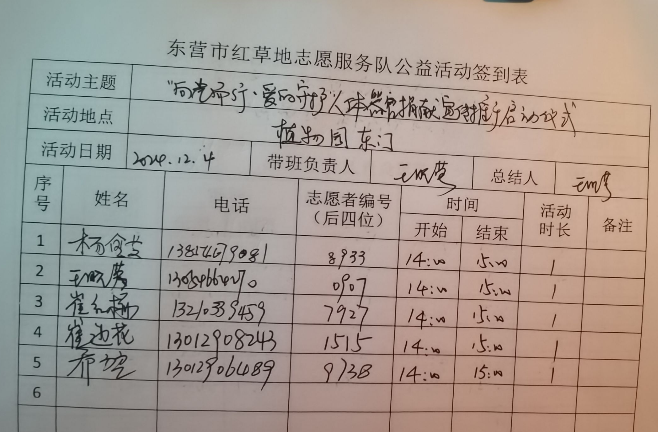 东营市红草地志愿服务队公益活动签到表
活动主题 "向光而行·爱的守护"人体器官捐献宣传推广启动仪式
活动地点 植物园东门
活动日期 2024.12.4 带班负责人 王晓莺 总结人 王晓莺
序号 姓名 电话 志愿者编号（后四位） 时间 活动时长 备注
开始 结束
1 8933 14:00 15:00 1
2 王晓莺 0907 14:00 15:00 1
3 崔红梅 13210339459 7927 14:00 15:00 1
4 崔迎花 13012908243 1515 14:00 15:00 1
5 13012906489 9738 14:00 15:00 1
6